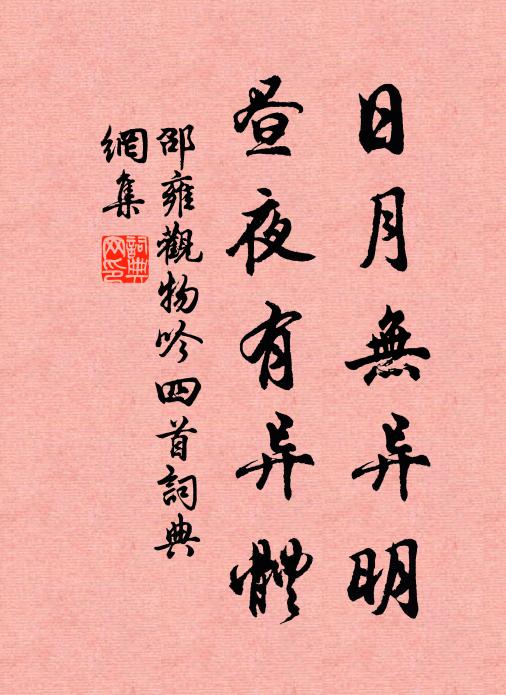 日月無异明
昼夜有异體
邵雍觀物吟四首詞典
網集
詞典
网印